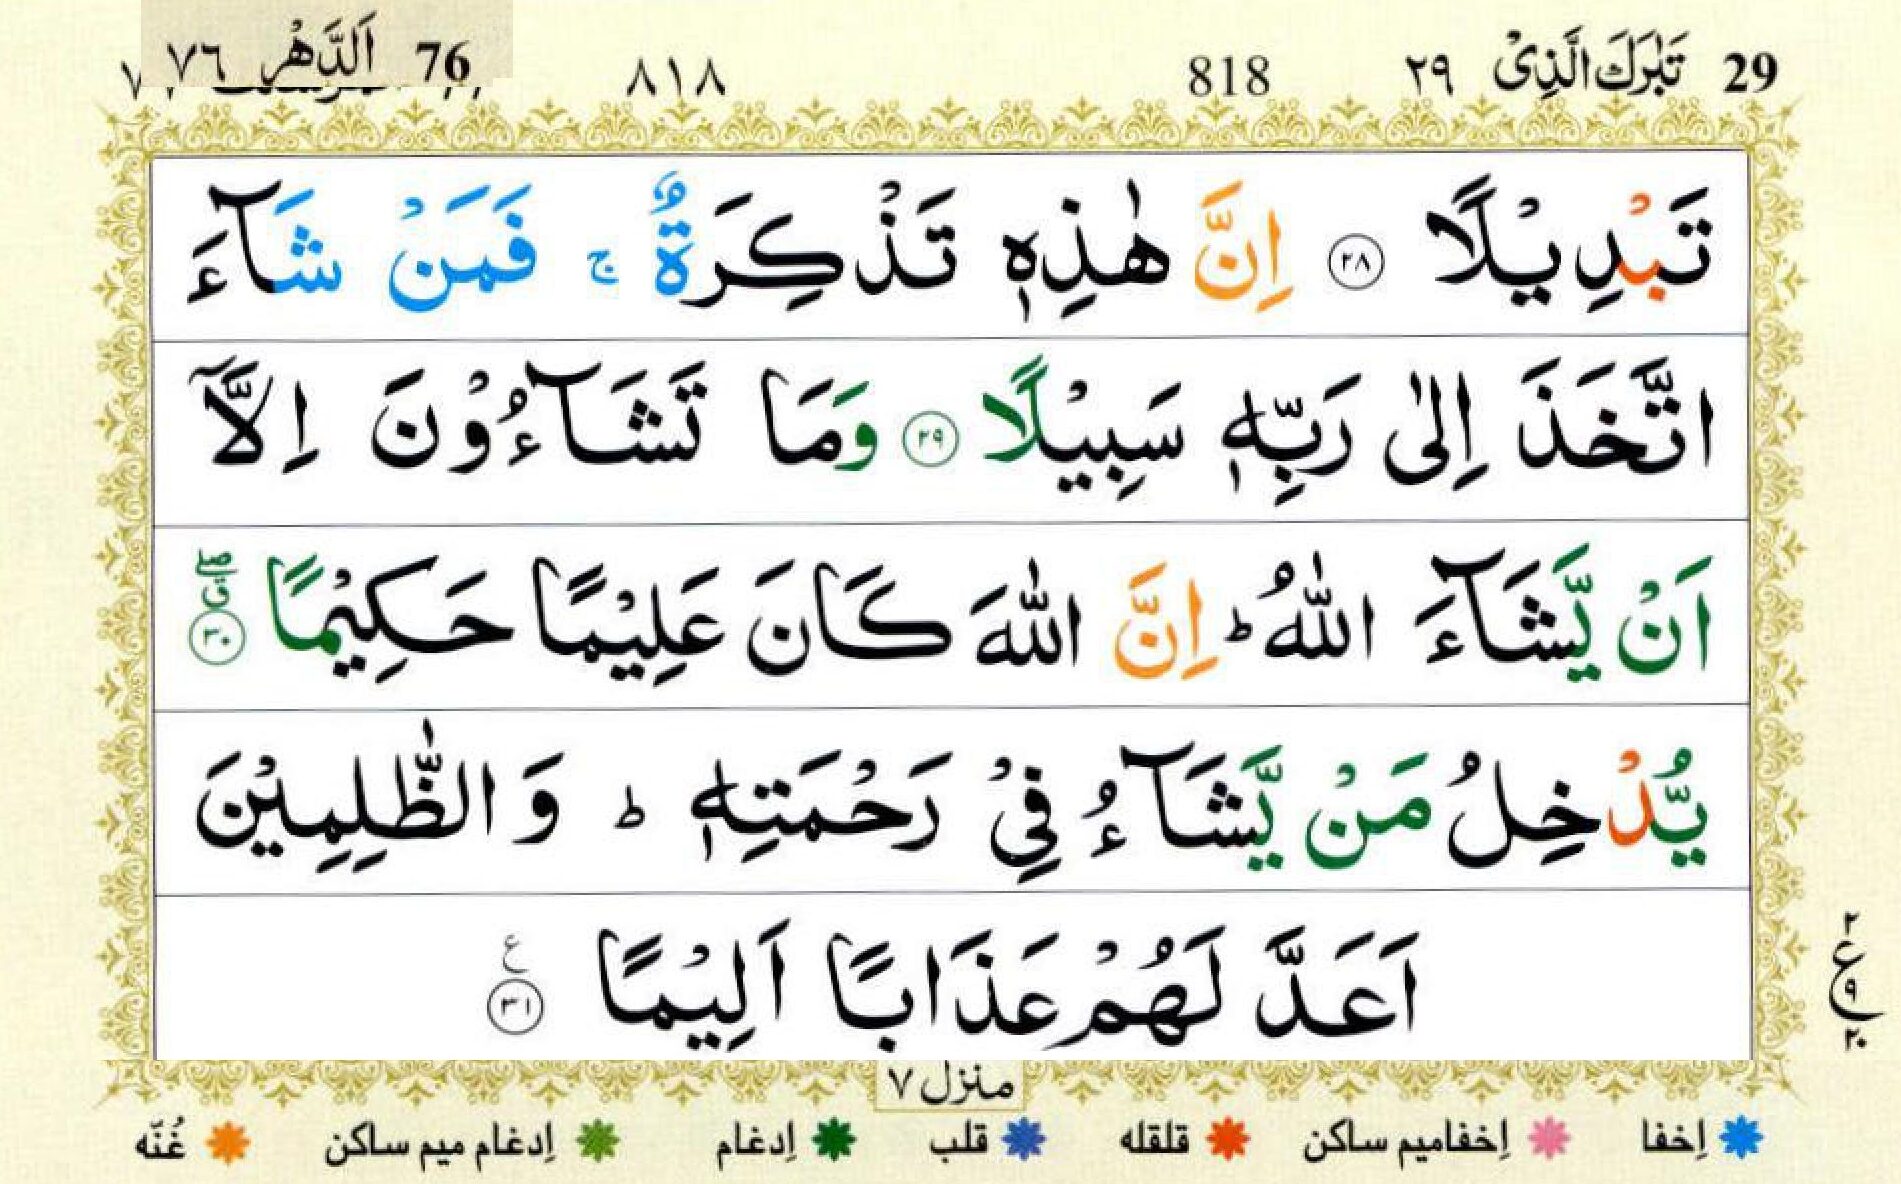 29 تَبٰرَكَ الَّذِیْ ٢٩ 818 ٨١٨ 76 اَلدَّهْر ٧٦
تَبْدِيْلًا ٢٨ اِنَّ هٰذِهٖ تَذْكِرَةٌ ۚ فَمَنْ شَآءَ
اتَّخَذَ اِلٰى رَبِّهٖ سَبِيْلًا ٢٩ وَمَا تَشَآءُوْنَ اِلَّاۤ
اَنْ يَّشَآءَ اللّٰهُ ؕ اِنَّ اللّٰهَ كَانَ عَلِيْمًا حَكِيْمًا ٣٠ ۖق
يُّدْخِلُ مَنْ يَّشَآءُ فِیْ رَحْمَتِهٖ ؕ وَ الظّٰلِمِيْنَ
اَعَدَّ لَهُمْ عَذَابًا اَلِيْمًا ٣١ ع
٢ ع ٩ ٢٠
منزل ٧
اِخفا اِخفامیم ساکن قلقله قلب اِدغام اِدغام میم ساکن غُنّه